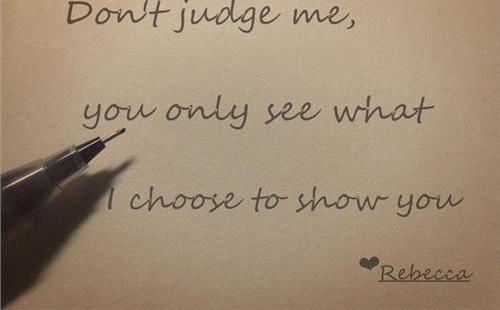 Don't judge me,
you only see what
I choose to show you
❤Rebecca